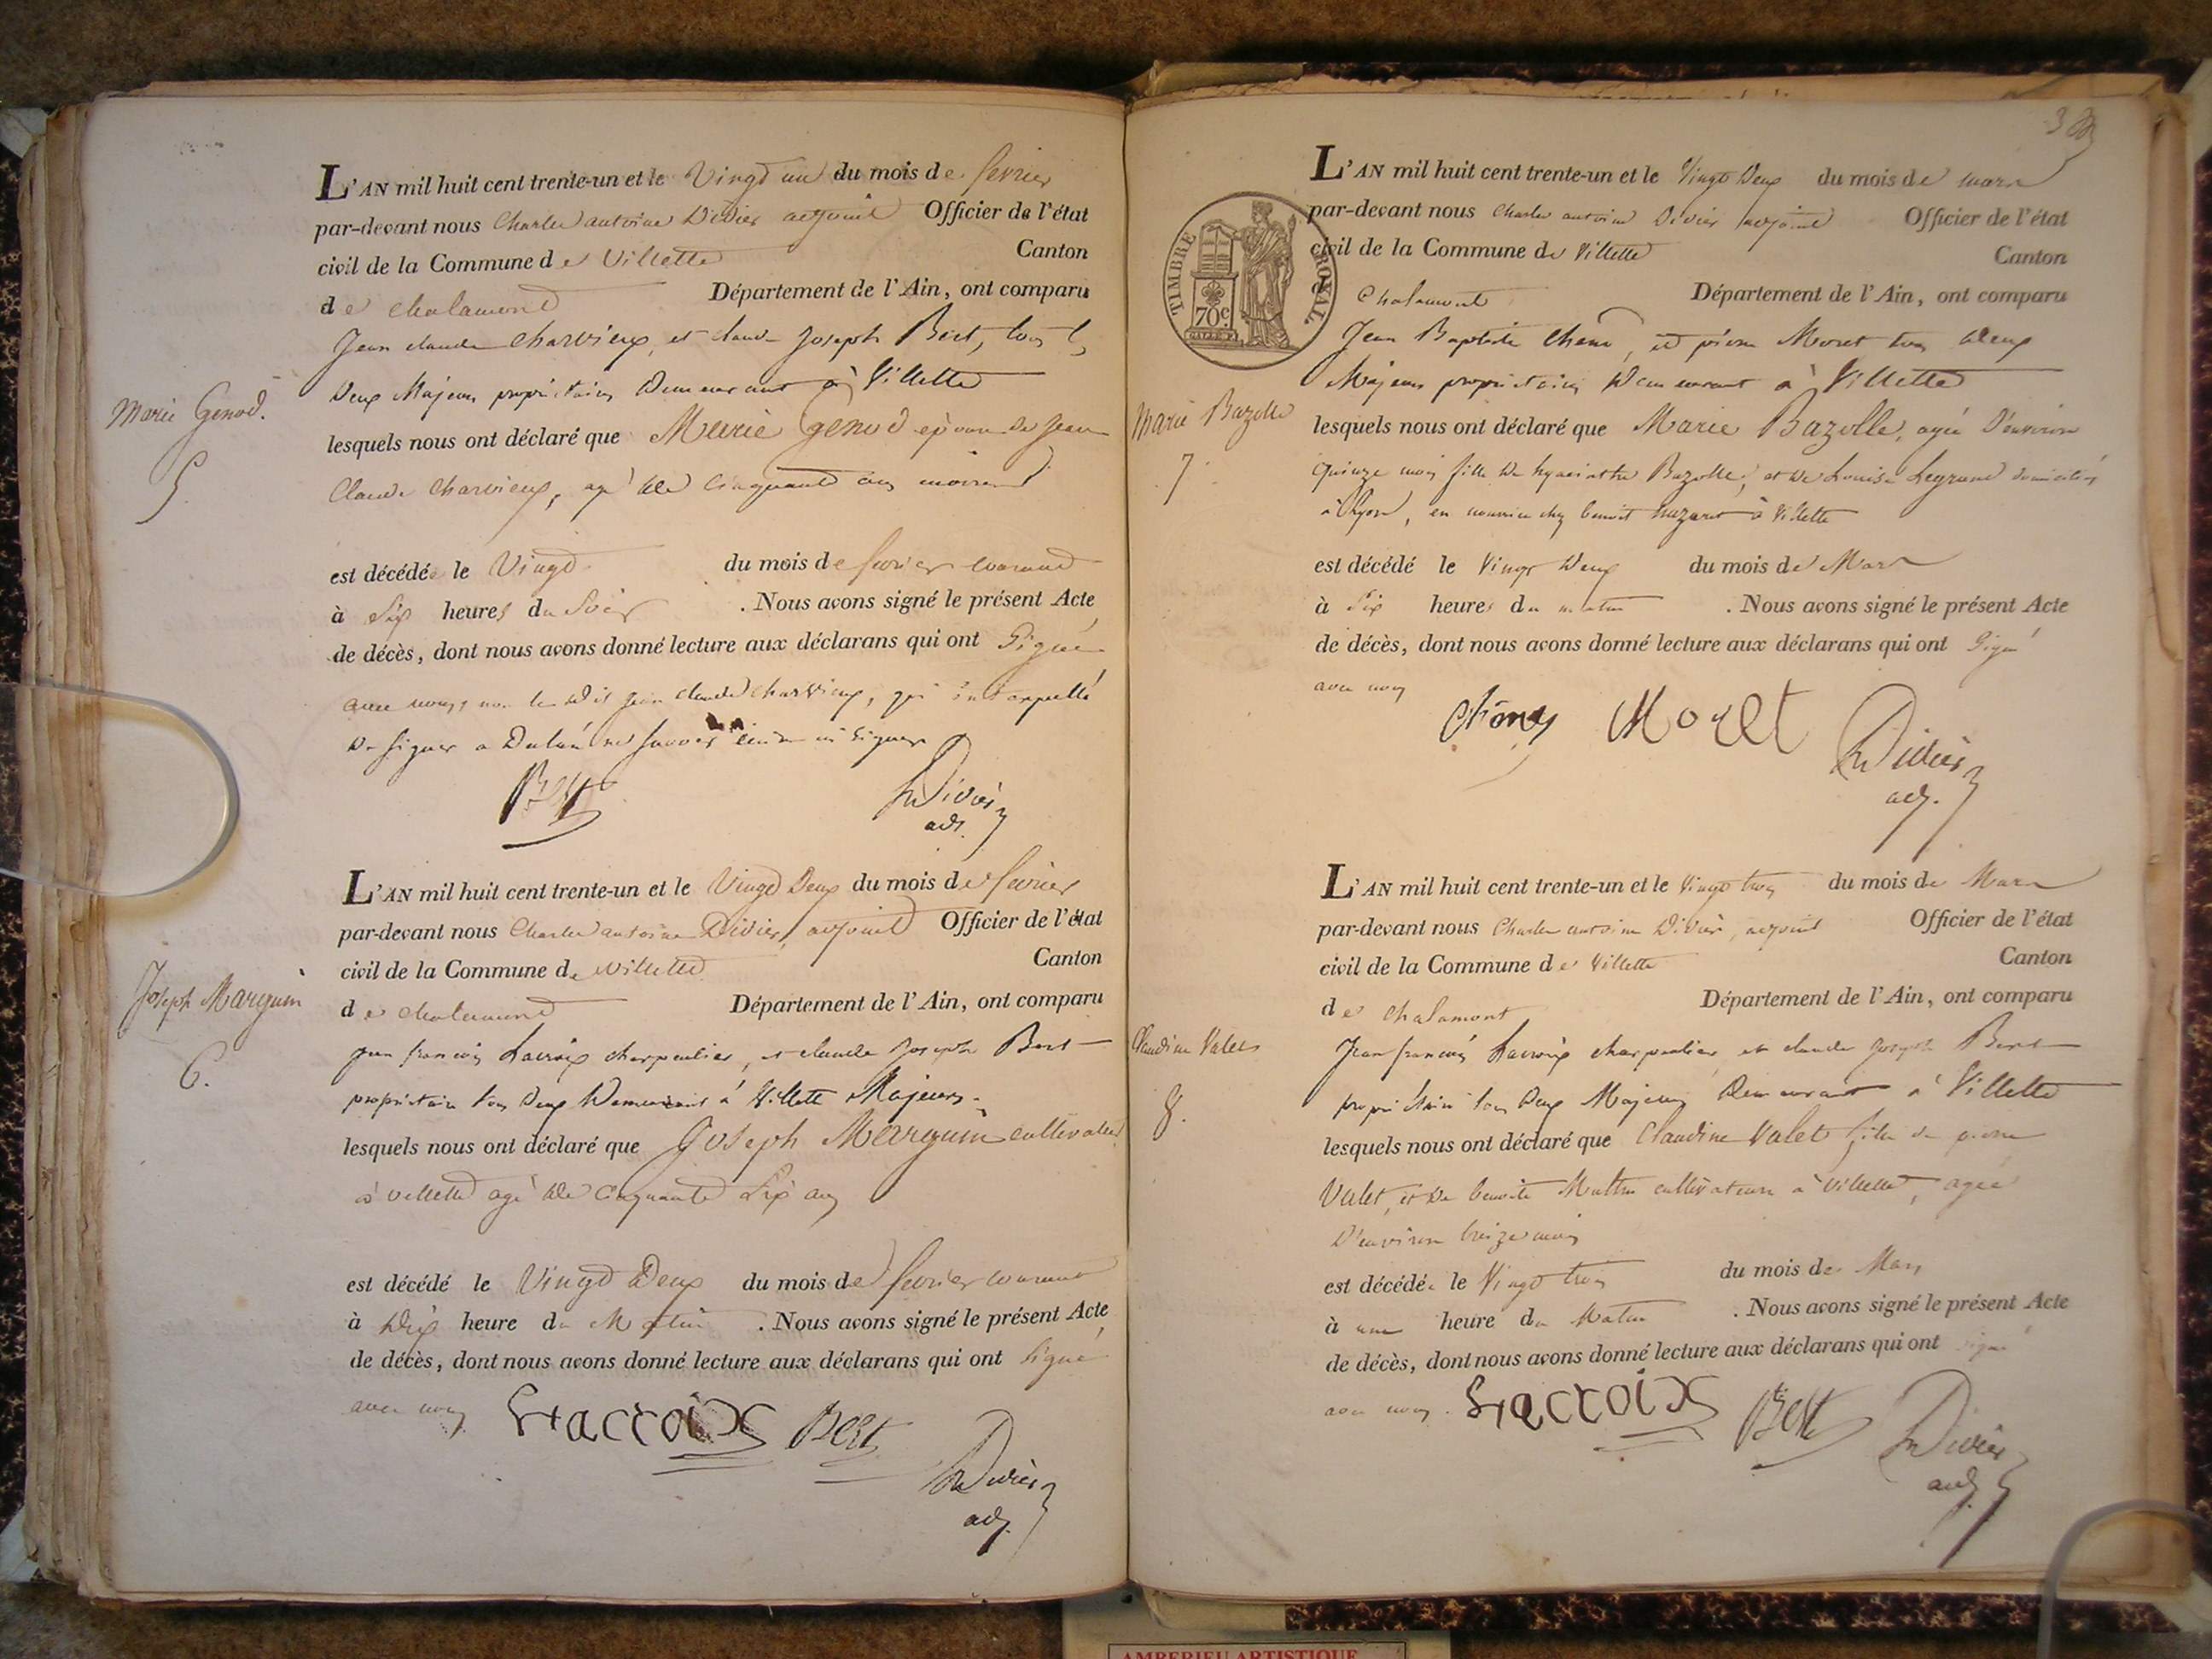 L'AN mil huit cent trente-un et le Vingt un du mois de fevrier
par-devant nous Charles antoine Didier adjoint Officier de l'état
civil de la Commune de Villette Canton
de chalamont Département de l'Ain, ont comparu
Jean claude Charvieux, et claude Joseph Bert, tous les
Deux Majeurs propriétaires Demeurant à Villette
Marie Genod.
5.
lesquels nous ont déclaré que Marie Genod épouse de Jean
Claude Charvieux, agé de Cinquante ans
est décédée le Vingt du mois de fevrier courant
à Six heures du Soir . Nous avons signé le présent Acte
de décès, dont nous avons donné lecture aux déclarans qui ont Signé
avec nous, non le dit Jean claude Charvieux, qui interpellé
De signer a Déclaré ne savoir ni signer
Bert Didier
adj.
L'AN mil huit cent trente-un et le Vingt Deux du mois de fevrier
par-devant nous Charles antoine Didier, adjoint Officier de l'état
civil de la Commune de villette Canton
Joseph Marguin
6.
de chalamont Département de l'Ain, ont comparu
jean françois Lacroix charpentier, et claude Joseph Bert
propriétaire tous Deux Demeurant à Villette Majeurs.
lesquels nous ont déclaré que Joseph Marguin cultivateur
à villette agé de Cinquante Six ans
est décédé le Vingt Deux du mois de fevrier courant
à Dix heure du Matin . Nous avons signé le présent Acte
de décès, dont nous avons donné lecture aux déclarans qui ont signé
avec nous Lacroix Bert
Didier
adj.
L'AN mil huit cent trente-un et le Vingt Deux du mois de mars
par-devant nous Charles antoine Didier adjoint Officier de l'état
civil de la Commune de Villette Canton
Chalamont Département de l'Ain, ont comparu
TIMBRE ROYAL
70c.
Jean Baptiste Chene, et pierre Moret tous Deux
Majeurs propriétaires Demeurant à Villette
Marie Bazolle
7.
lesquels nous ont déclaré que Marie Bazolle, agée D'environ
quinze mois fille de hyacinthe Bazolle, et de Louise Legrand domiciliés
à Lyon, en nourrice chez benoit à Villette
est décédé le Vingt Deux du mois de Mars
à Six heures du matin . Nous avons signé le présent Acte
de décès, dont nous avons donné lecture aux déclarans qui ont Signé
avec nous
Moret Didier
adj.
L'AN mil huit cent trente-un et le Vingt trois du mois de Mars
par-devant nous Charles antoine Didier, adjoint Officier de l'état
civil de la Commune de Villette Canton
de Chalamont Département de l'Ain, ont comparu
Claudine Valet
8.
Jean françois Lacroix charpentier et claude joseph Bert
propriétaire tous Deux Majeurs Demeurant à Villette
lesquels nous ont déclaré que Claudine Valet fille de pierre
Valet, et de benoite cultivateurs à villette, agée
D'environ treize mois
est décédée le Vingt trois du mois de Mars
à une heure du Matin . Nous avons signé le présent Acte
de décès, dont nous avons donné lecture aux déclarans qui ont signé
avec nous. Lacroix Bert Didier
adj.
AMBERIEU ARTISTIQUE